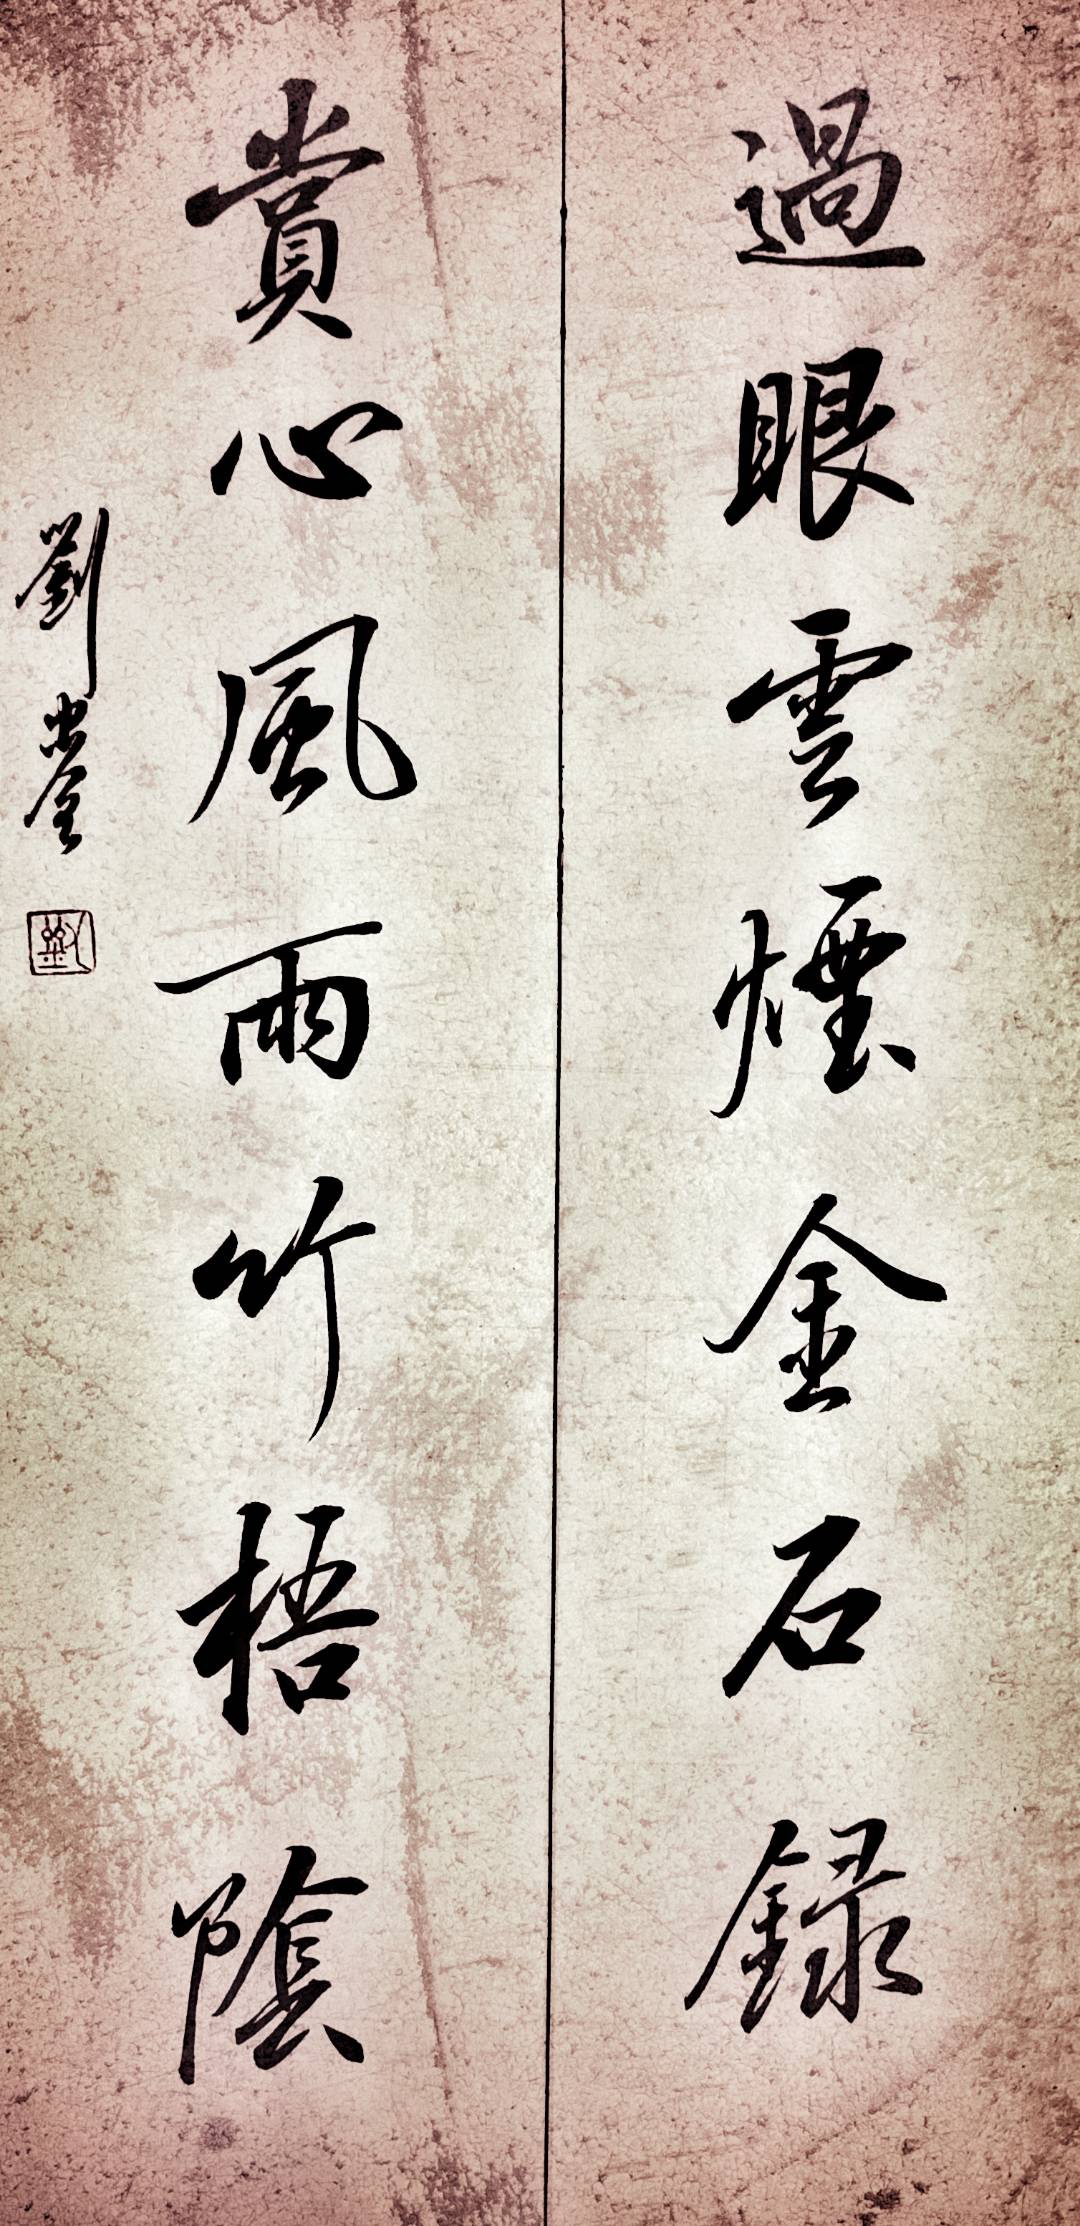 過眼雲煙金石録
賞心風雨竹梧陰
劉